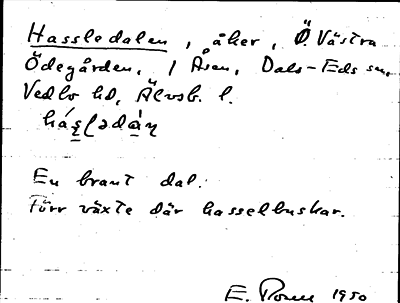 Hassledalen, åker, Ö. Västra
Ödegården, / Åsen, Dals-Eds sn,
Vedbo hd, Älvsb. l.
En brant dal.
Förr växte där hasselbuskar.
E. 1950